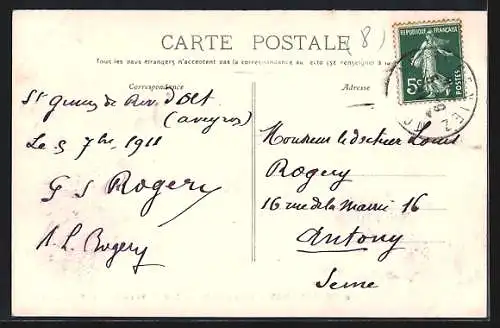 CARTE POSTALE (8)
Tous les pays étrangers n'acceptent pas la correspondance au recto (Se renseigner à la
Correspondance
Adresse
RÉPUBLIQUE FRANÇAISE
5c
POSTES
St Geniez de Riv. d'Olt
(aveyron)
Le 5 7bre 1911
G S Rogery
A. L. Rogery
Monsieur le docteur Louis
Rogery
16 rue de la Mairie 16
Antony
Seine